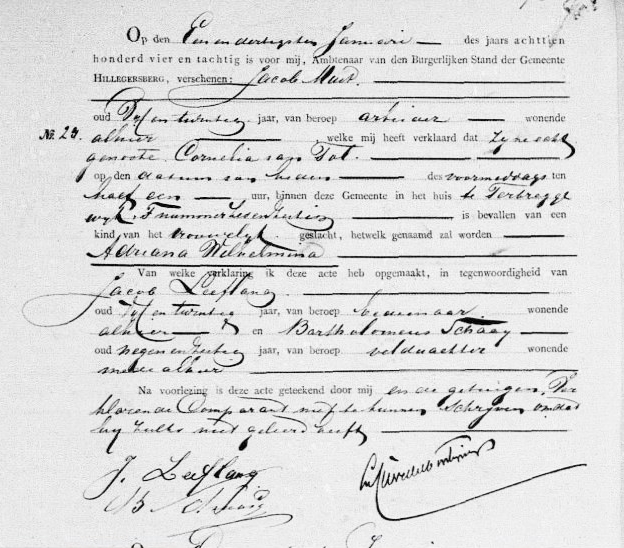 Op den Een en dertigsten Januari des jaars achttien
honderd vier en tachtig is voor mij, Ambtenaar van den Burgerlijken Stand der Gemeente
HILLEGERSBERG, verschenen: Jacob
oud Vijf en twintig jaar, van beroep arbeider wonende
No. 24. alhier, welke mij heeft verklaard dat zijne echt
genoote Cornelia van Tol
op den datum van heden des voormiddags ten
half een uur, binnen deze Gemeente in het huis te Terbregge
wijk F nummer is bevallen van een
kind van het vrouwelijk geslacht, hetwelk genaamd zal worden
Adriana Wilhelmina
Van welke verklaring ik deze acte heb opgemaakt, in tegenwoordigheid van
Jacob Leeflang
oud Vijf en twintig jaar, van beroep wonende
alhier en Bartholomeus Schaay
oud negen en jaar, van beroep veldwachter wonende
mede alhier
Na voorlezing is deze acte geteekend door mij en de getuigen. Ver
klarende Comparant niet te kunnen schrijven omdat
hij zulks niet geleerd heeft
J. Leeflang
B